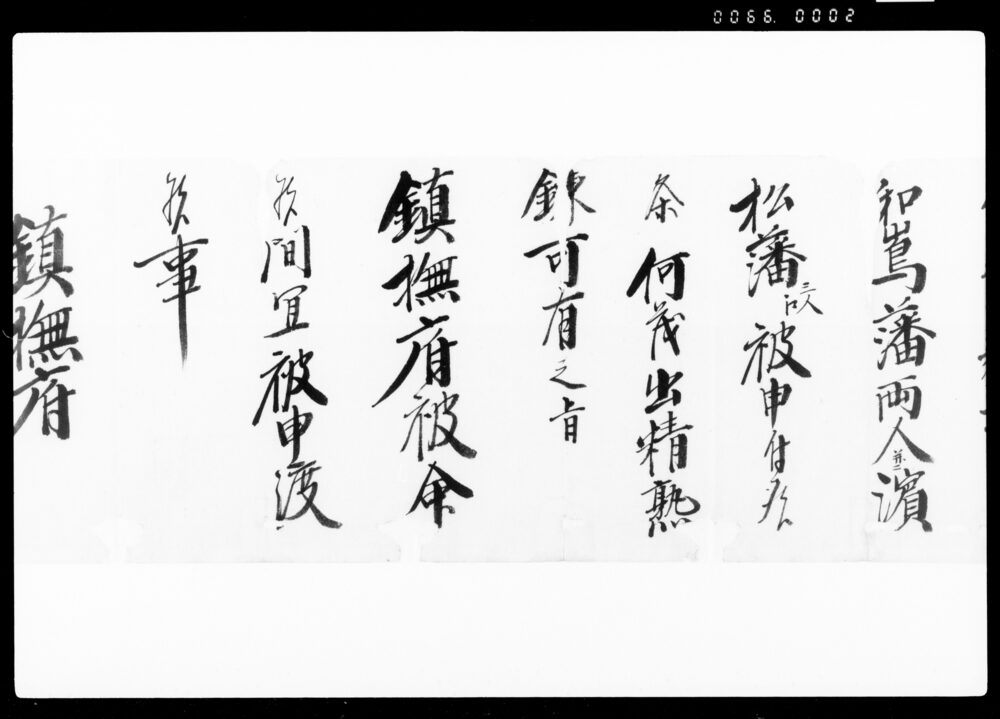 0066. 0002
和嶌藩両人并ニ濱
松藩
被申付候
条何茂出精熟
錬可有之旨
鎮撫府被命
候間宜被申渡
候事
鎮撫府